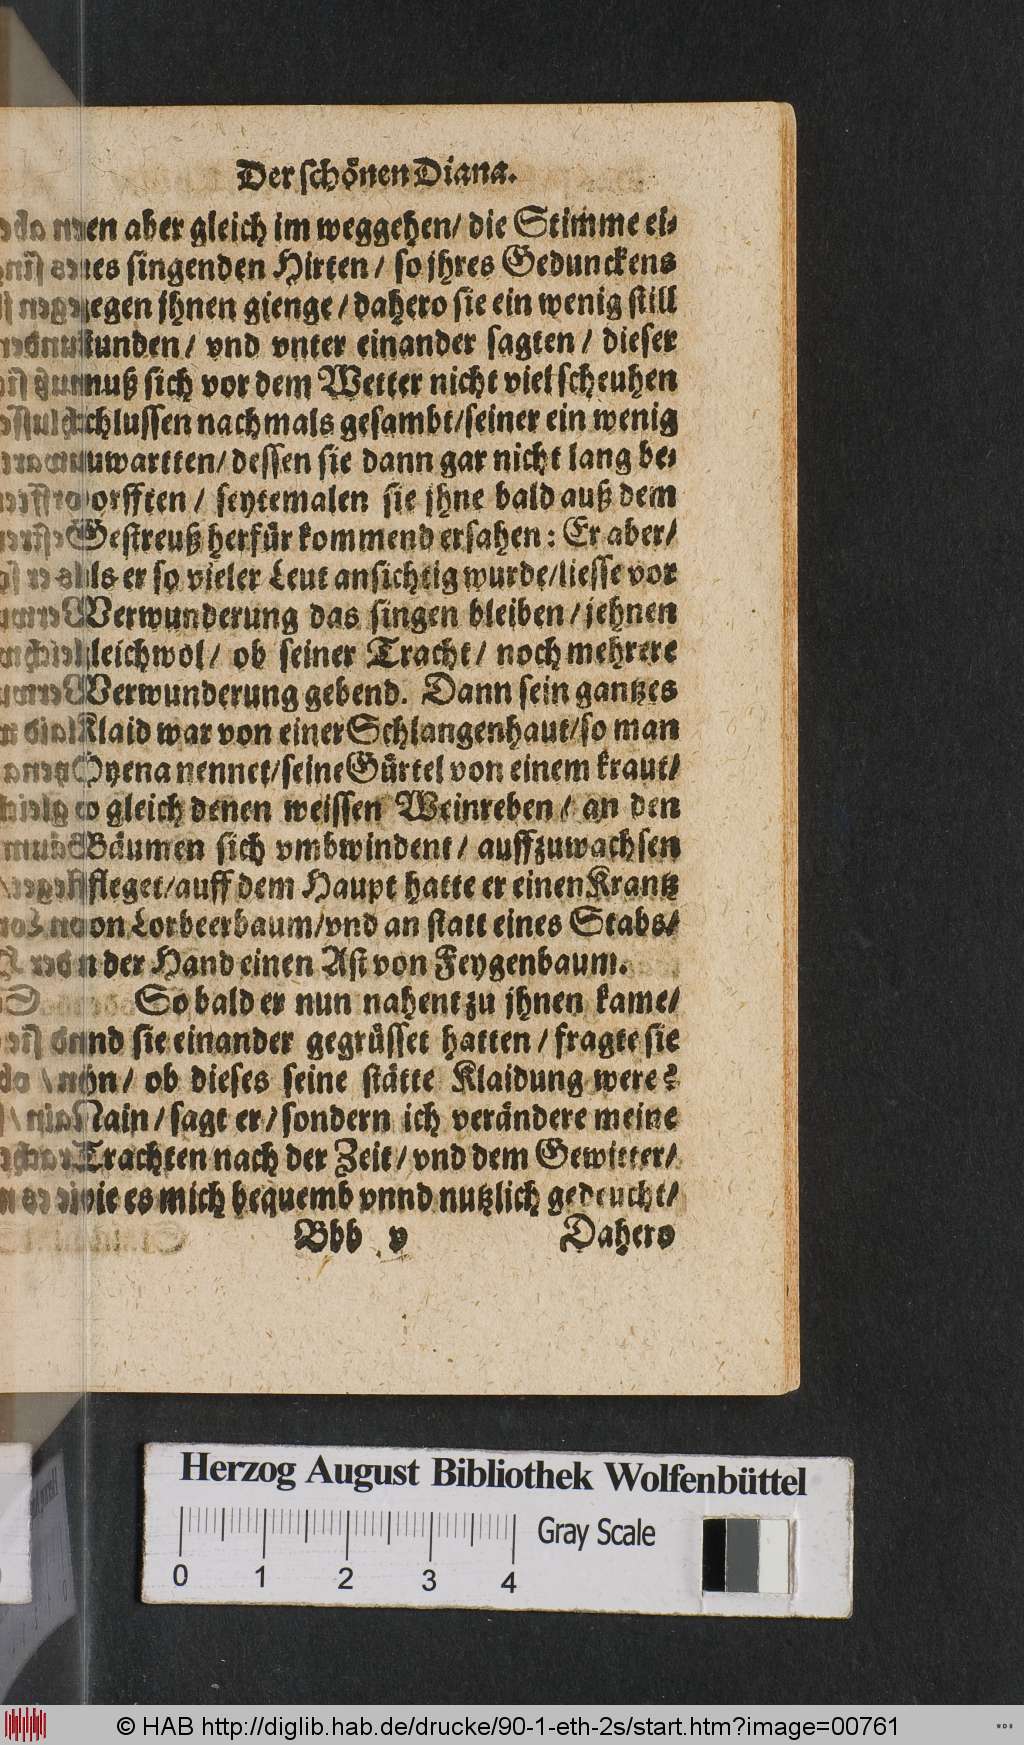 Der schönen Diana.
en aber gleich im weggehen/ die Stimme ei-
nes singenden Hirten / so jhres Gedunckens
gegen jhnen gienge / dahero sie ein wenig still
stunden/ vnd vnter einander sagten / dieser
muß sich vor dem Wetter nicht viel scheuhen
schlussen nachmals gesambt/seiner ein wenig
zuwartten/ dessen sie dann gar nicht lang be-
dorfften / seytemalen sie jhne bald auß dem
Gestreuß herfür kommend ersahen: Er aber/
als er so vieler Leut ansichtig wurde/liesse vor
Verwunderung das singen bleiben / jehnen
gleichwol/ ob seiner Tracht / noch mehrere
Verwunderung gebend. Dann sein gantzes
Klaid war von einer Schlangenhaut/so man
Hyena nennet/seine Gürtel von einem kraut/
so gleich denen weissen Weinreben / an den
Bäumen sich vmbwindent / auffzuwachsen
pfleget/auff dem Haupt hatte er einen Krantz
von Lorbeerbaum/vnd an statt eines Stabs/
in der Hand einen Ast von Feygenbaum.
So bald er nun nahent zu jhnen kame/
vnnd sie einander gegrüsset hatten / fragte sie
jhn/ ob dieses seine stätte Klaidung were?
Nain / sagt er / sondern ich verändere meine
Trachten nach der Zeit / vnd dem Gewitter/
wie es mich bequemb vnnd nutzlich gedeucht/
Bbb v Dahero
Herzog August Bibliothek Wolfenbüttel
Gray Scale
0 1 2 3 4
© HAB http://diglib.hab.de/drucke/90-1-eth-2s/start.htm?image=00761